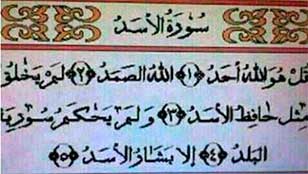 سورة الأسد
قل هو الله أحد ﴿١﴾ الله الصمد ﴿٢﴾ لم يخلق
مثل حافظ الأسد ﴿٣﴾ ولم يحكم سوريا
البلد ﴿٤﴾ إلا بشار الأسد ﴿٥﴾